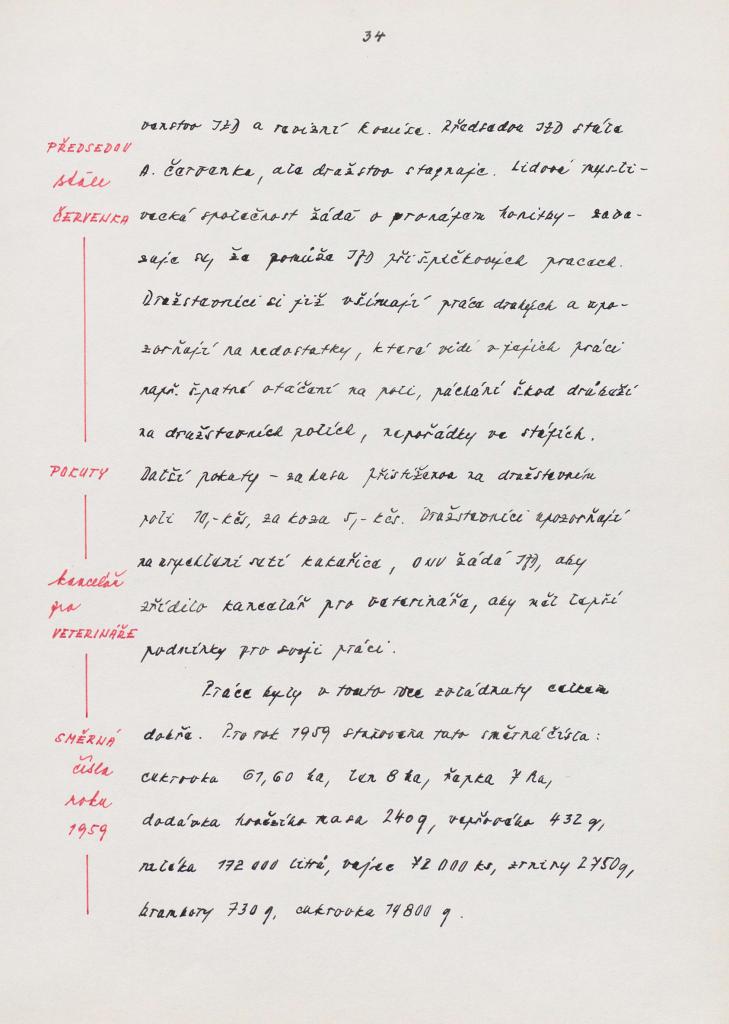 34
PŘEDSEDOU
stále
ČERVENKA
venstvo JZD a revizní komise. Předsedou JZD stále
A. Červenka, ale družstvo stagnuje. Lidové mysli-
vecká společnost žádá o pronájem honitby - zava-
zuje se, že pomůže JZD při špičkových pracech.
Družstevníci si již všímají práce druhých a upo-
zorňují na nedostatky, které vidí v jejich práci
např. špatné otáčení na poli, páchání škod drůbeží
na družstevních polích, nepořádky ve stájích.
POKUTY
Další pokuty - za husu přistiženou na družstevním
poli 10,- kčs, za kozu 5,- kčs. Družstevníci upozorňují
kancelář
pro
VETERINÁŘE
na urychlení setí kukuřice, ONV žádá JZD, aby
zřídilo kancelář pro veterináře, aby měl lepší
podmínky pro svoji práci.
Práce byly v tomto roce zvládnuty celkem
SMĚRNÁ
čísla
roku
1959
dobře. Pro rok 1959 stanovena tato směrná čísla:
cukrovka 61,60 ha, len 8 ha, řepka 7 ha,
dodávka hovězího masa 240 q, vepřového 432 q,
mléka 172 000 litrů, vajec 72 000 ks, zrniny 2750 q,
brambory 730 q, cukrovka 14800 q.